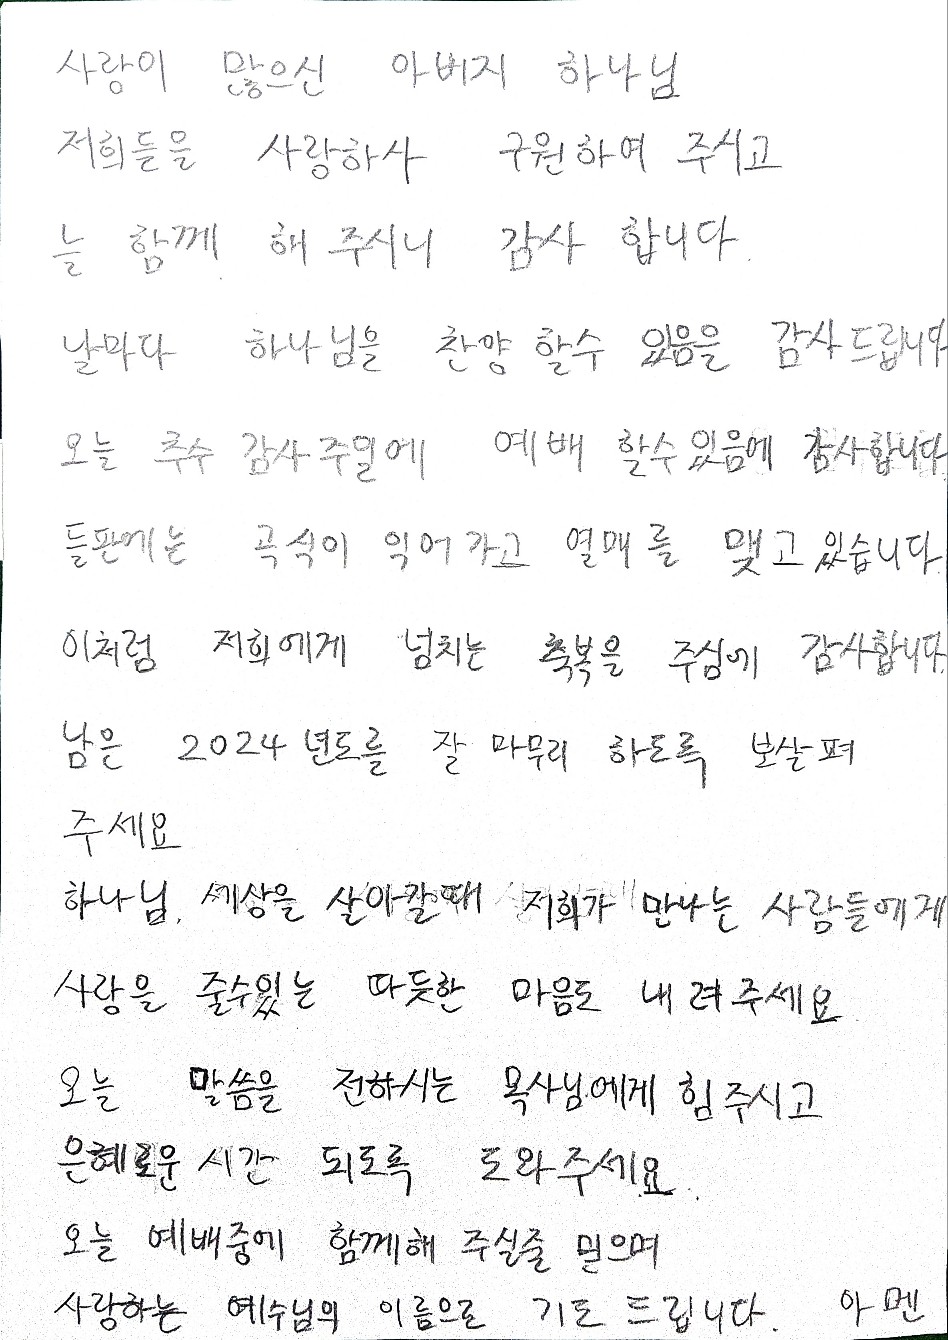 사랑이 많으신 아버지 하나님
저희들을 사랑하사 구원하여 주시고
늘 함께 해 주시니 감사 합니다.
날마다 하나님을 찬양 할수 있음을 감사드립니다
오늘 추수 감사주일에 예배 할수있음에 감사합니다
들판에는 곡식이 익어가고 열매를 맺고 있습니다.
이처럼 저희에게 넘치는 축복을 주심에 감사합니다.
남은 2024년도를 잘 마무리 하도록 보살펴
주세요
하나님, 세상을 살아갈때 저희가 만나는 사람들에게
사랑을 줄수있는 따듯한 마음도 내려주세요
오늘 말씀을 전하시는 목사님에게 힘주시고
은혜로운 시간 되도록 도와주세요.
오늘 예배중에 함께해 주실줄 믿으며
사랑하는 예수님의 이름으로 기도 드립니다. 아멘